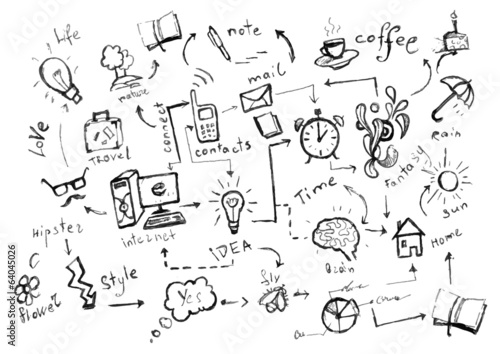 Life
note
coffee
nature
mail
connect
Love
TRAVEL
contacts
Rain
Fantasy
Time
sun
Hipster
internet
IDEA
Brain
Home
Style
Yes
fly
flower
Adobe Stock | #64045026